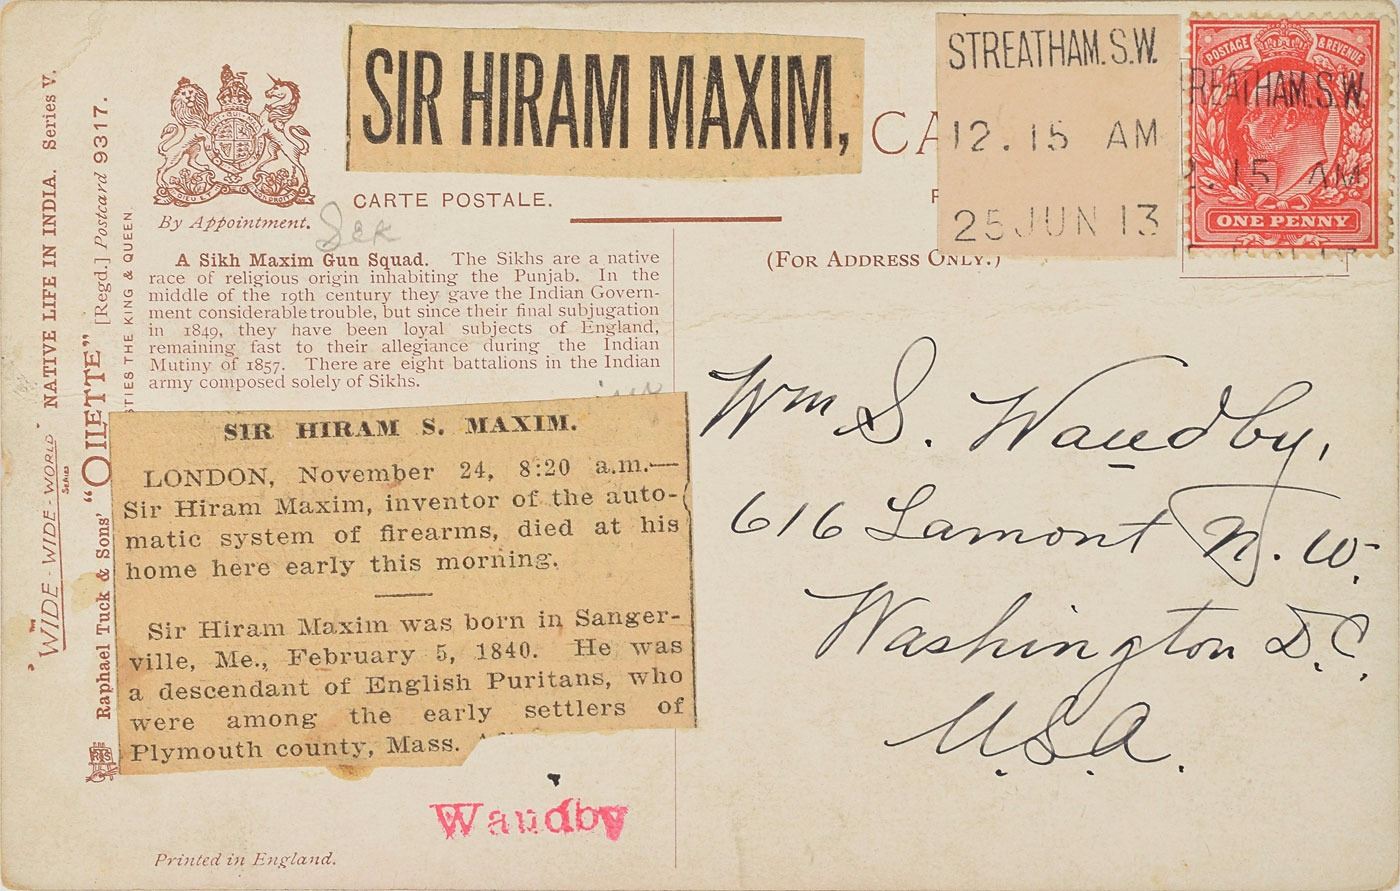 SIR HIRAM MAXIM,
CA
CARTE POSTALE.
By Appointment.
A Sikh Maxim Gun Squad. The Sikhs are a native
race of religious origin inhabiting the Punjab. In the
middle of the 19th century they gave the Indian Govern-
ment considerable trouble, but since their final subjugation
in 1849, they have been loyal subjects of England,
remaining fast to their allegiance during the Indian
Mutiny of 1857. There are eight battalions in the Indian
army composed solely of Sikhs.
SIR HIRAM S. MAXIM.
LONDON, November 24, 8:20 a.m.—
Sir Hiram Maxim, inventor of the auto-
matic system of firearms, died at his
home here early this morning.
Sir Hiram Maxim was born in Sanger-
ville, Me., February 5, 1840. He was
a descendant of English Puritans, who
were among the early settlers of
Plymouth county, Mass.
Waudby
Printed in England.
"THE WIDE-WIDE-WORLD" SERIES NATIVE LIFE IN INDIA. Series V.
Raphael Tuck & Sons' "OILETTE" [Regd.] Postcard 9317.
STIES THE KING & QUEEN.
STREATHAM.S.W.
12.15 AM
25 JUN 13
POSTAGE & REVENUE
REATHAM.S.W
.15 AM
ONE PENNY
(FOR ADDRESS ONLY.)
Wm S. Waudby,
616 Lamont N.W.
Washington D.C.
U.S.A.